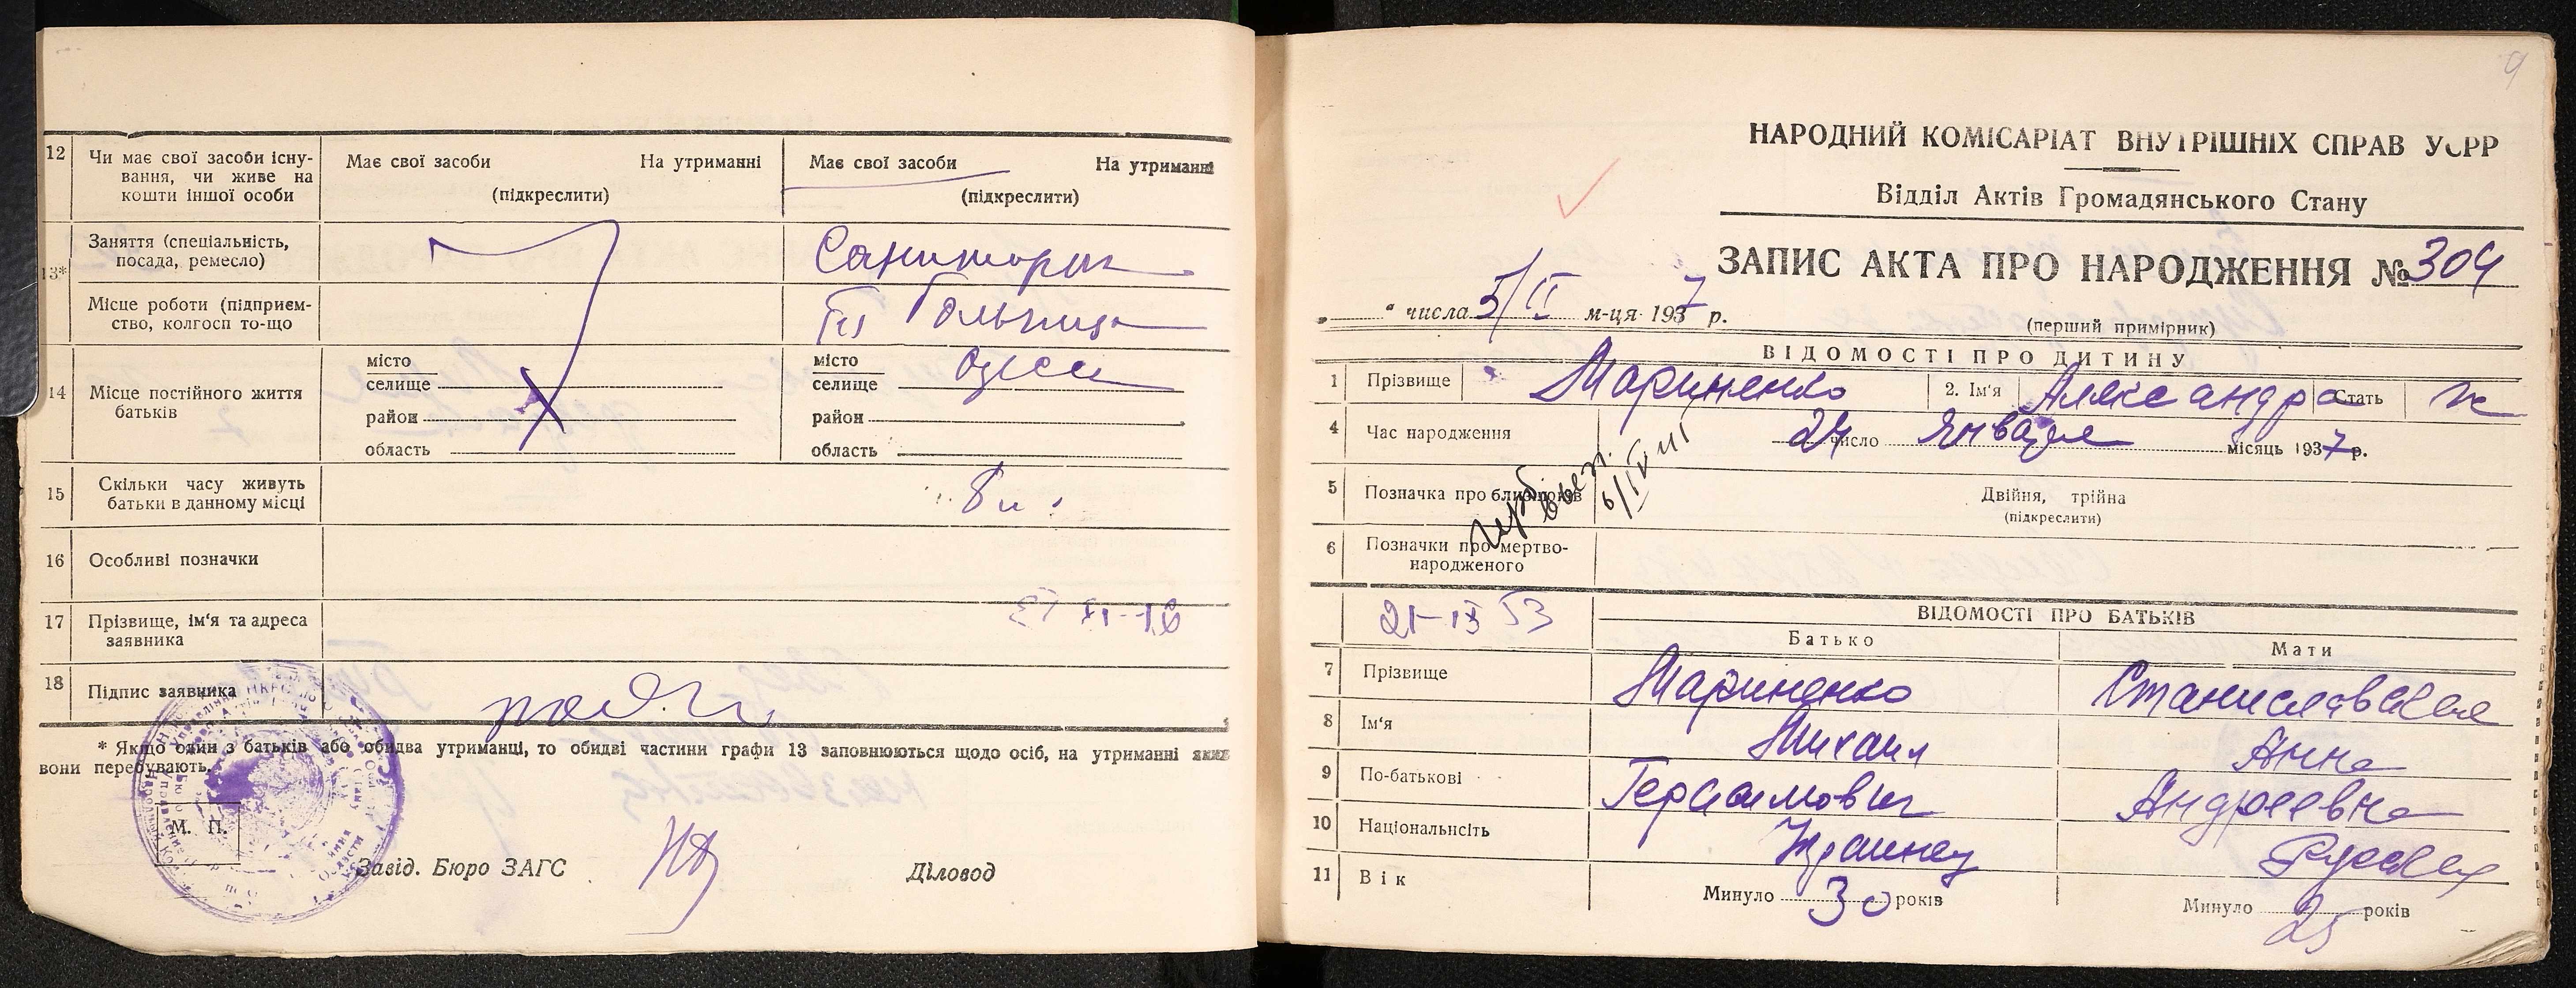 12 Чи має свої засоби існування, чи живе на кошти іншої особи
Має свої засоби На утриманні
(підкреслити)
Має свої засоби На утриманні
(підкреслити)
13* Заняття (спеціальність, посада, ремесло)
Місце роботи (підприємство, колгосп то-що
14 Місце постійного життя батьків
місто
селище
район
область
місто
селище Одеса
район
область
15 Скільки часу живуть батьки в данному місці
16 Особливі позначки
17 Прізвище, ім'я та адреса заявника
18 Підпис заявника
* Якщо один з батьків або обидва утриманці, то обидві частини графи 13 заповнюються щодо осіб, на утриманні яких
вони перебувають.
М. П.
Завід. Бюро ЗАГС Діловод
9
НАРОДНИЙ КОМІСАРІАТ ВНУТРІШНІХ СПРАВ УСРР
Відділ Актів Громадянського Стану
ЗАПИС АКТА ПРО НАРОДЖЕННЯ № 304
„ “ числа 5/II м-ця 1937 р.
(перший примірник)
ВІДОМОСТІ ПРО ДИТИНУ
1 Прізвище Мариненко 2. Ім'я Александра Стать ж
4 Час народження 24 число Января місяць 1937 р.
5 Позначка про близнюків Двійня, трійня
(підкреслити)
6 Позначки про мертвонародженого
21-IX 53
ВІДОМОСТІ ПРО БАТЬКІВ
Батько Мати
7 Прізвище Мариненко Станиславская
8 Ім'я Михаил Анна
9 По-батькові Герасимович Андреевна
10 Національнсіть Украинец Русская
11 Вік Минуло 30 років Минуло 25 років